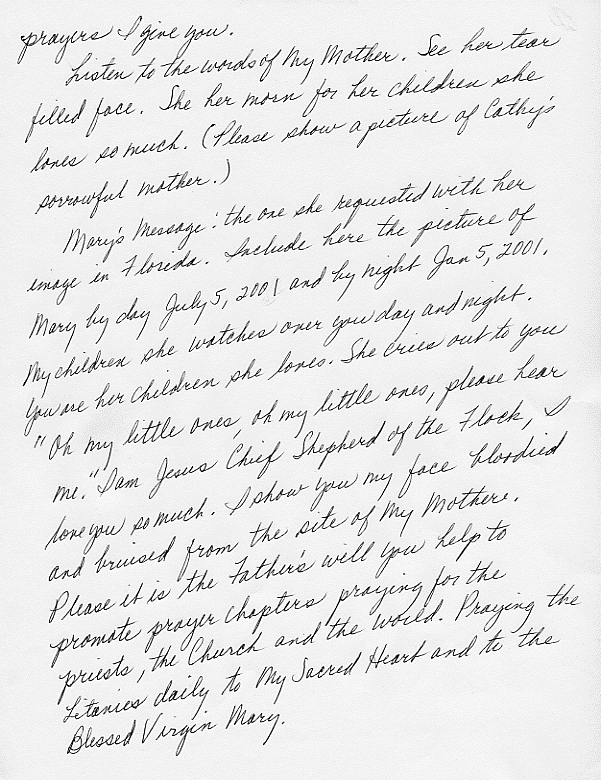 prayers I give you.
Listen to the words of My Mother. See her tear
filled face. She her morn for her children she
loves so much. (Please show a picture of Cathy's
sorrowful mother.)
Mary's Message: the one she requested with her
image in Florida. Include here the picture of
Mary by day July 5, 2001 and by night Jan 5, 2001.
My children she watches over you day and night.
You are her children she loves. She cries out to you
"Oh my little ones, oh my little ones, please hear
me." I am Jesus Chief Shepherd of the Flock, I
love you so much. I show you my face bloodied
and bruised from the site of My Mothere.
Please it is the Father's will you help to
promote prayer chapters praying for the
priests, the Church and the world. Praying the
Litanies daily to My Sacred Heart and to the
Blessed Virgin Mary.